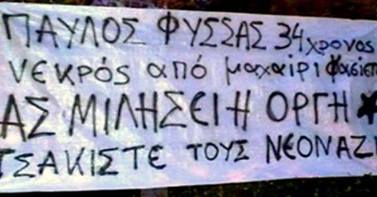 ΠΑΥΛΟΣ ΦΥΣΣΑΣ 34χρονος
νεκρός από μαχαίρι
ΑΣ ΜΙΛΗΣΕΙ Η ΟΡΓΗ
ΤΣΑΚΙΣΤΕ ΤΟΥΣ